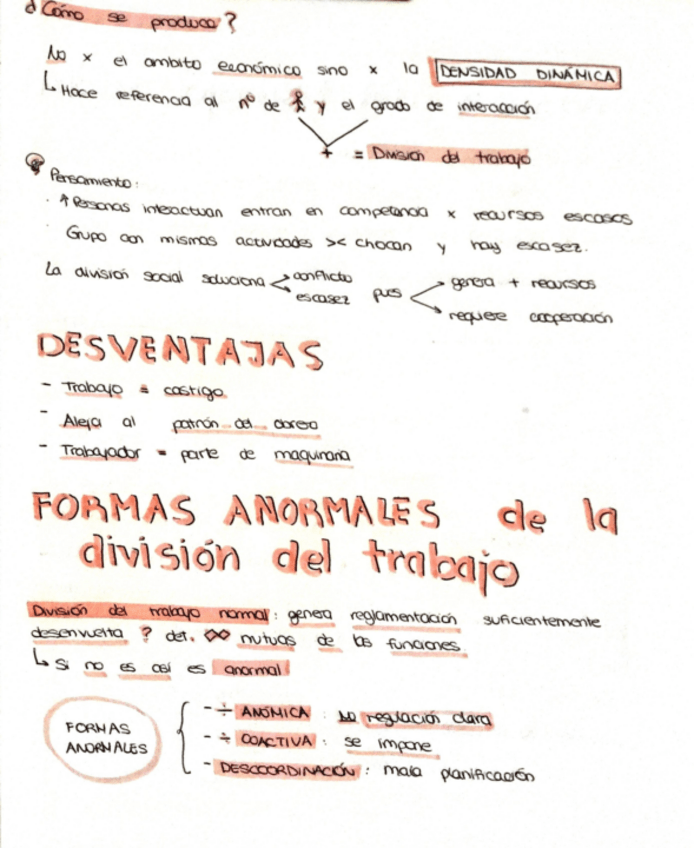 ¿Cómo se produce?
No x el ambito económico sino x la DENSIDAD DINÁMICA
↳ Hace referencia al nº de y el grado de interacción
+ = División del trabajo
Pensamiento:
· ↑ Personas interactuan entran en competencia x recursos escasos
· Grupo con mismas actividades >< chocan y hay escasez.
La división social soluciona < conflicto escasez pues < genera + recursos requiere cooperación
DESVENTAJAS
- Trabajo = castigo
- Aleja al patrón del obrero
- Trabajador = parte de maquinaria
FORMAS ANORMALES de la
división del trabajo
División del trabajo normal: genera reglamentación suficientemente
desenvuelta ? det. mutuas de las funciones.
↳ Si no es así es anormal
FORMAS ANORMALES
- ÷ ANÓMICA : no regulación clara
- ÷ COACTIVA : se impone
- DESCOORDINACIÓN : mala planificación